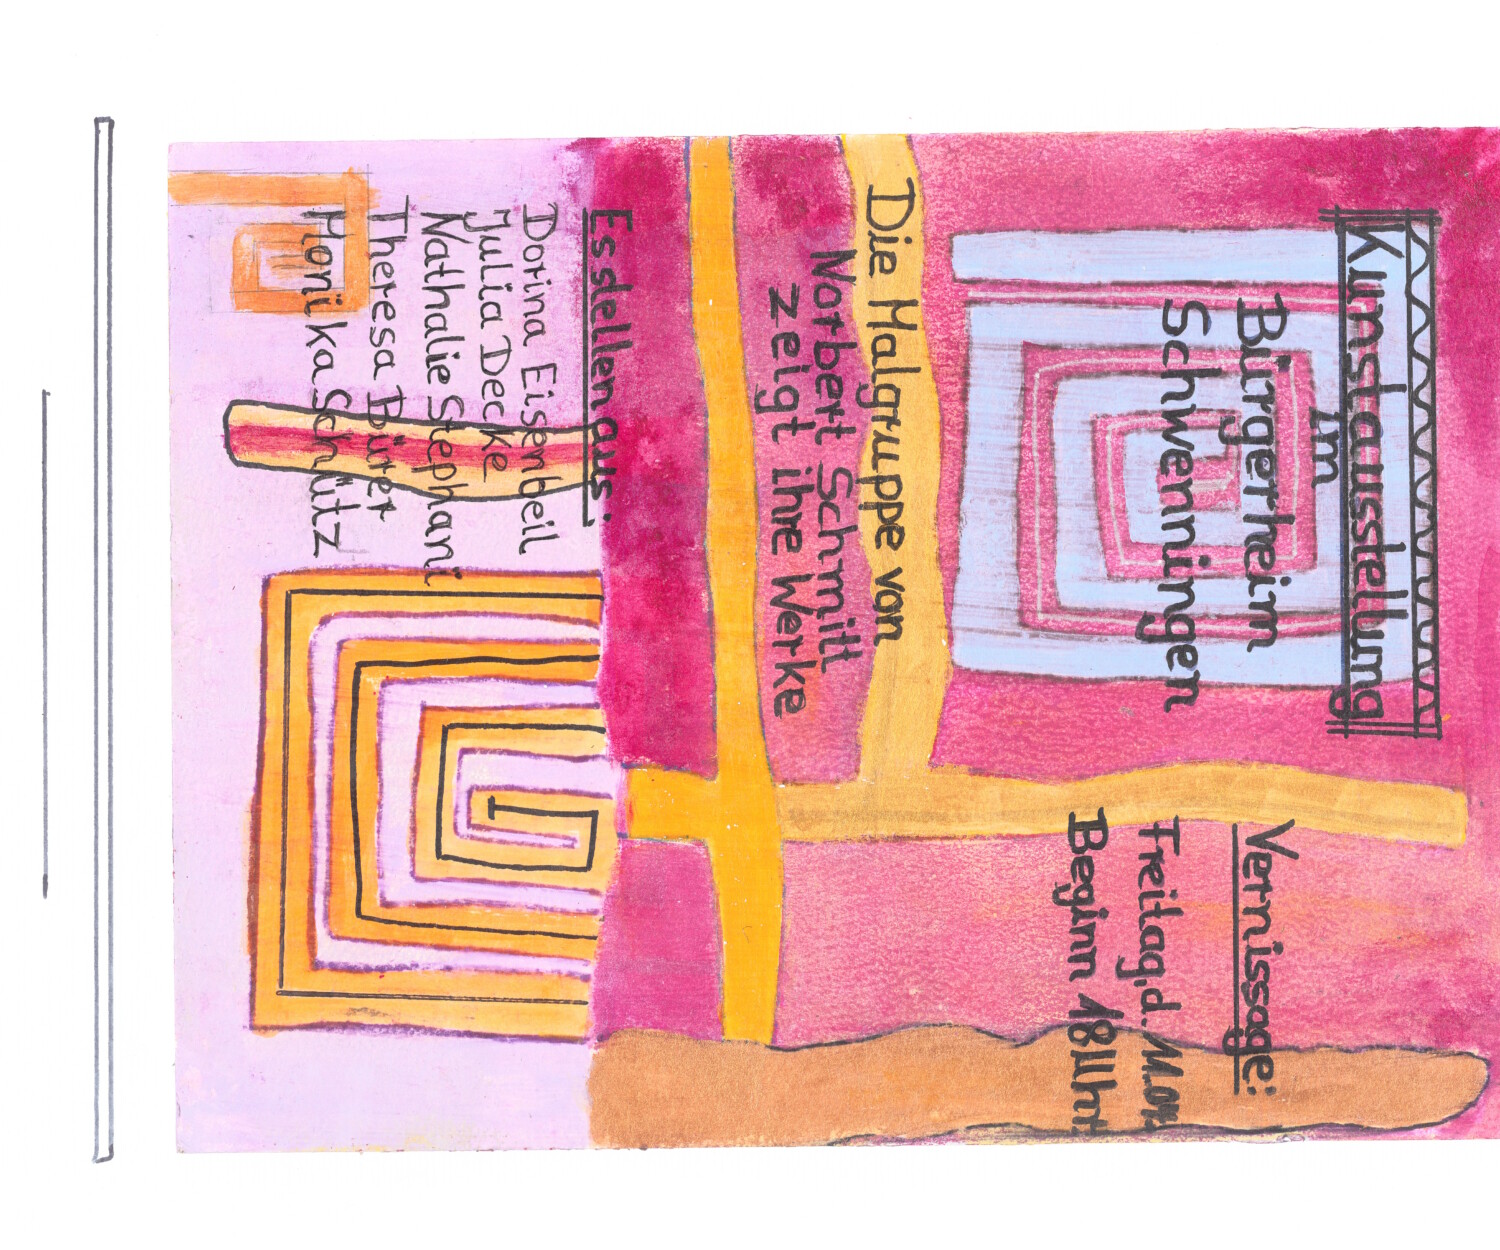 Kunstausstellung
im
Bürgerheim
Schwenningen
Vernissage:
Freitag, d. 11.04.
Beginn 18 Uhr
Die Malgruppe von
Norbert Schmitt
zeigt ihre Werke
Es stellen aus:
Dorina Eisenbeil
Julia Decke
Nathalie Stephani
Theresa Bürer
Monika Schütz